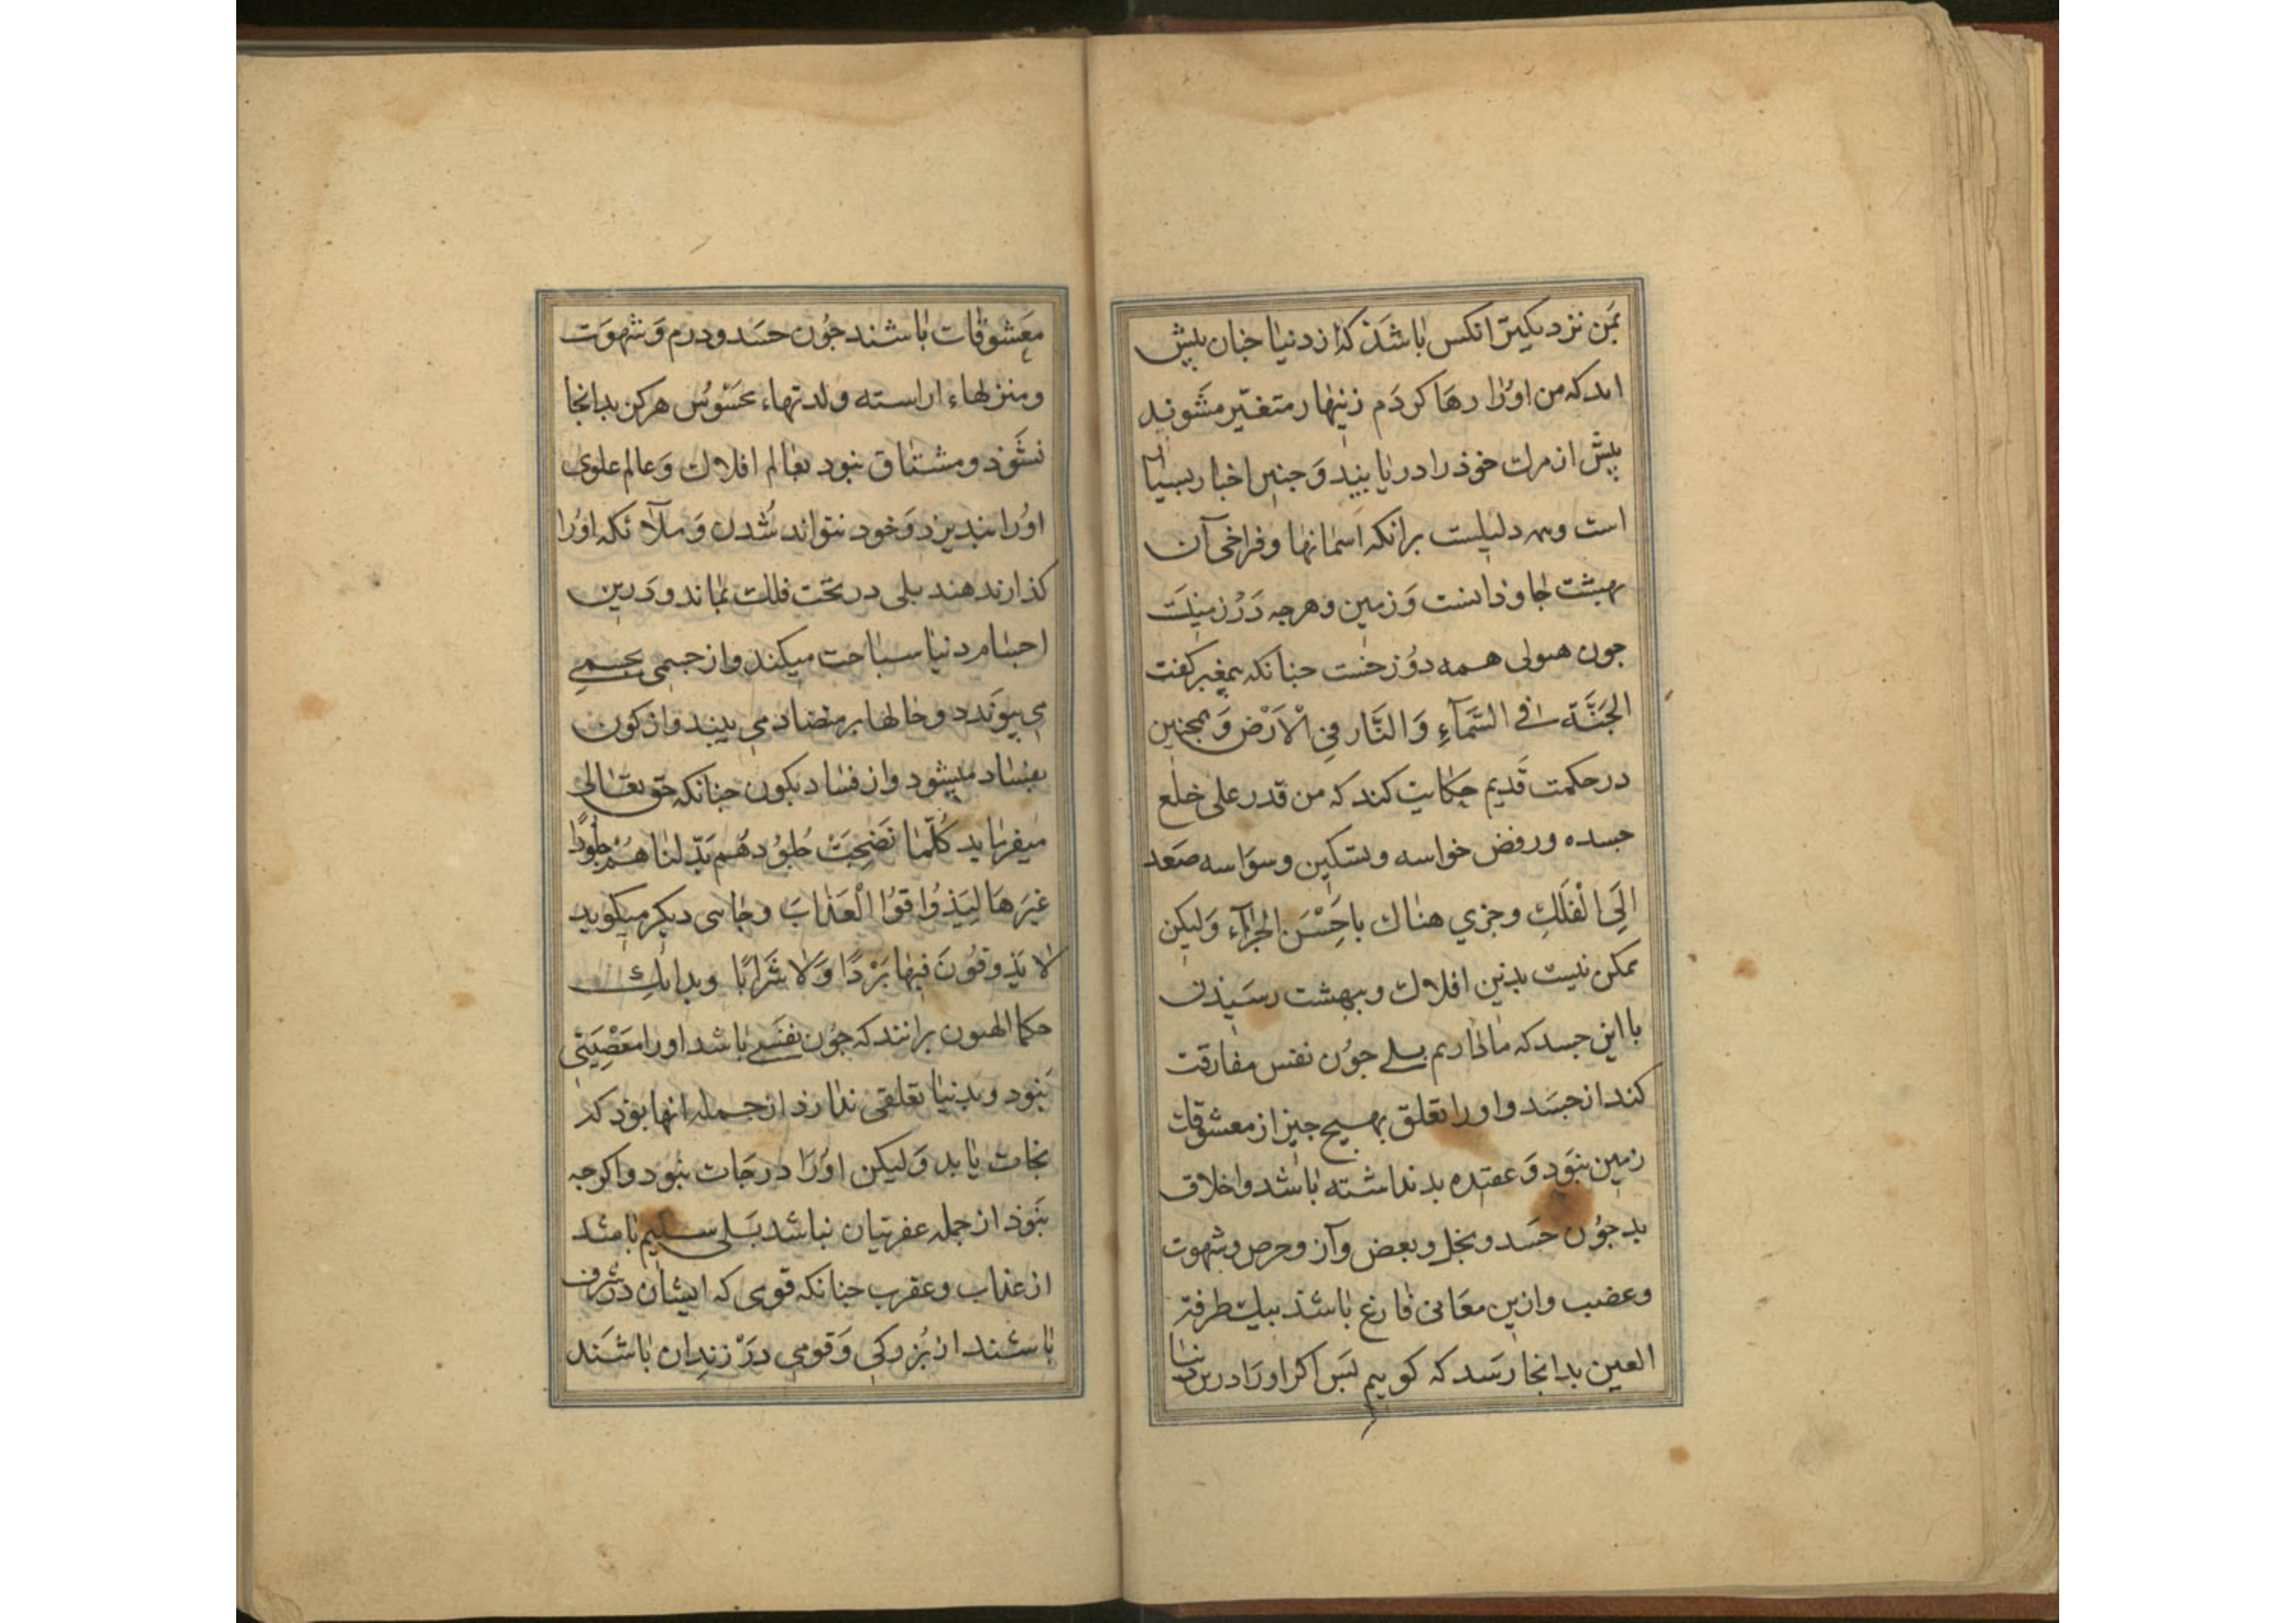 بمن نزدیکتر انکس باشذ که از دنیا جنان بیش
اید که من اورا رها کردم زینهار متغیر مشوید
بیش از مرك خوذ را دریابید و جنین اخبار بسیار
است وهمه دلیلست برانکه اسمانها و فراخی آن
بهشت جاوذانست و زمین و هرجه در زمینست
جون هیولی همه دوزخست جنانکه بیغمبر کفت
الجنة فی السمآء و النار فی الارض و همجنین
در حکمت قدیم حکایت کند که من قدر علی خلع
جسده و رفض حواسه و تسکین وسواسه صعد
الی الفلك و جزي هناك باحسن الجزآء ولیکن
ممکن نیست بدین افلاك و ببهشت رسیذن
با این جسد که ما داریم بلی جون نفس مفارقت
کند از جسد و اورا تعلق بهیج جیز از معشوقات
زمین نبود و عقیده بد نداشته باشد و اخلاق
بد جون حسد و بخل و بغض و آز و حرص و شهوت
و غضب و ازین معانی فارغ باشذ بیك طرفة
العین بدانجا رسد که کوییم بس اکر اورا درین دنیا
معشوقات باشند جون حسد و درم و شهوت
و منزلهاء اراسته و لذتهاء محسوس هرکز بدانجا
نشوذ و مشتاق نبود بعالم افلاك و عالم علوی
اورا نبدیرد و خود نتواند شدن و ملآئکه اورا
کذارند هند بلی در تحت فلك بماند و درین
اجسام دنیا سباحت میکند و از جسمی بجسمی
می بیوندد و حالها بر متضاد می بیند و از کون
بفساد میشود و از فساد بکون جنانکه حق تعالی
میفرماید کلما نضجت جلودهم بدلناهم جلودا
غیرها لیذوقوا العذاب و جایی دیکر میکوید
لا یذوقون فیها بردا ولا شرابا و بدانك
حکما الهیون برانند که جون نفسی باشد اورا معصیتی
نبود و بدنیا تعلقی ندارذ از جمله انها بوذ که
نجات یابد و لیکن اورا درجات نبود و اکرجه
نبوذ از جمله عفریتان نباشد بلی سلیم باشد
از عذاب و عقرب جنانکه قومی که ایشان در شرف
باشند از بزرکی و قومی در زندان باشند